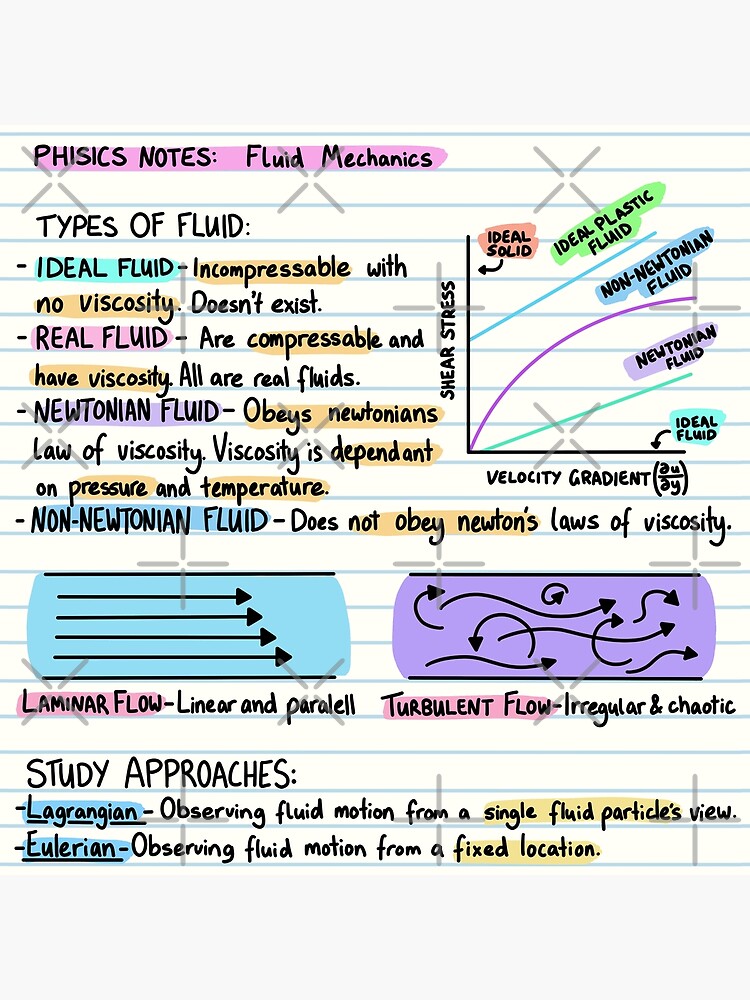 PHISICS NOTES: Fluid Mechanics
TYPES OF FLUID:
- IDEAL FLUID - Incompressable with
no viscosity. Doesn't exist.
- REAL FLUID - Are compressable and
have viscosity. All are real fluids.
- NEWTONIAN FLUID - Obeys newtonians
law of viscosity. Viscosity is dependant
on pressure and temperature.
- NON-NEWTONIAN FLUID - Does not obey newton's laws of viscosity.
SHEAR STRESS
IDEAL
SOLID
IDEAL PLASTIC
FLUID
NON-NEWTONIAN
FLUID
NEWTONIAN
FLUID
IDEAL
FLUID
VELOCITY GRADIENT (∂u/∂y)
LAMINAR FLOW - Linear and paralell
TURBULENT FLOW - Irregular & chaotic
STUDY APPROACHES:
- Lagrangian - Observing fluid motion from a single fluid particle's view.
- Eulerian - Observing fluid motion from a fixed location.